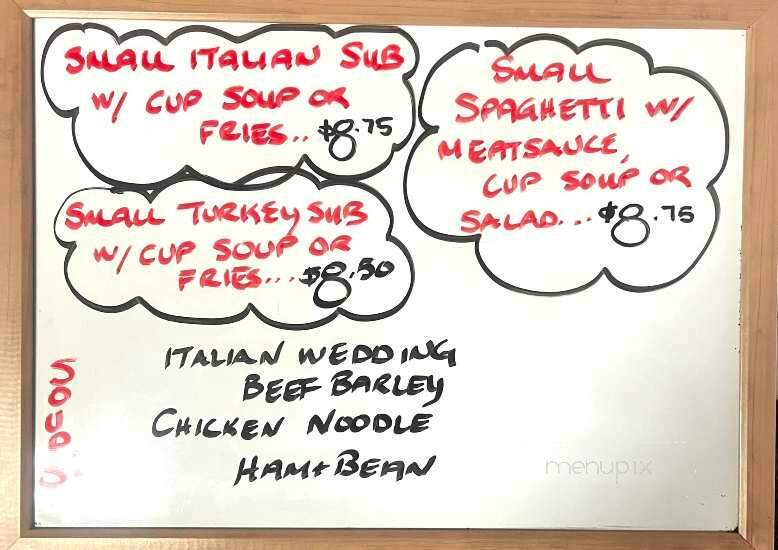 SMALL ITALIAN SUB
W/ CUP SOUP OR
FRIES.. $8.75
SMALL TURKEY SUB
W/ CUP SOUP OR
FRIES... $8.50
SMALL
SPAGHETTI W/
MEATSAUCE,
CUP SOUP OR
SALAD... $8.75
SOUPS
ITALIAN WEDDING
BEEF BARLEY
CHICKEN NOODLE
HAM + BEAN
menupix